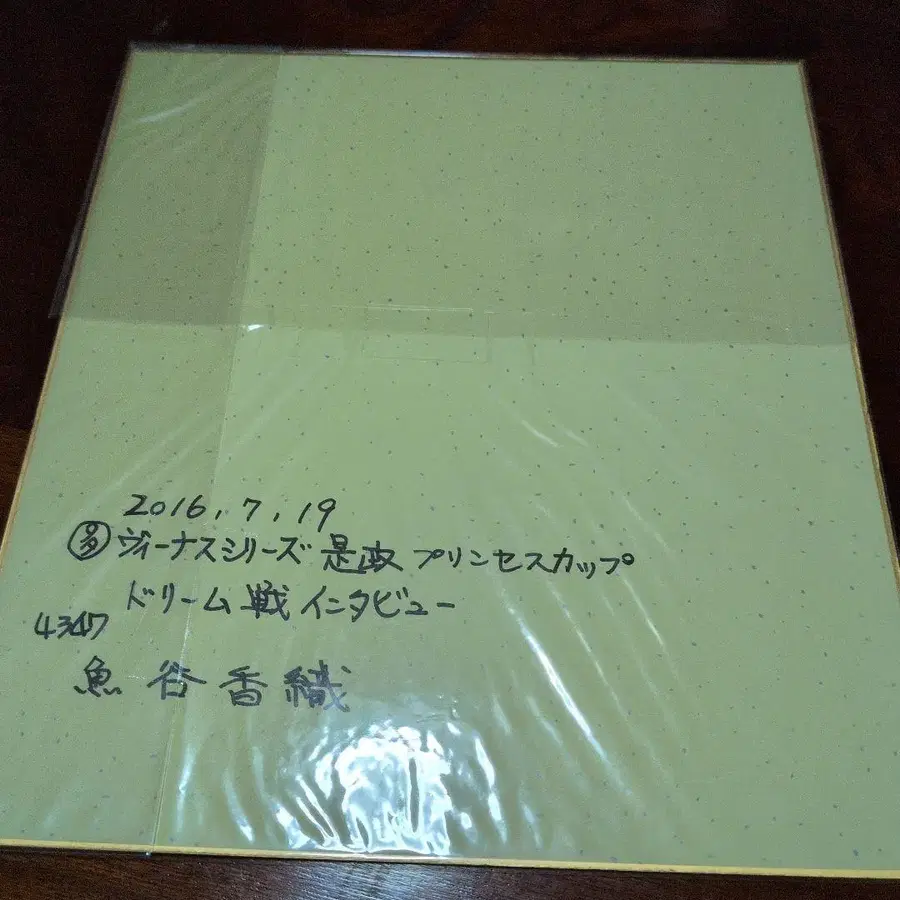 2016.7.19
㊂ヴィーナスシリーズ 是政 プリンセスカップ
ドリーム戦 インタビュー
4347
魚谷香織